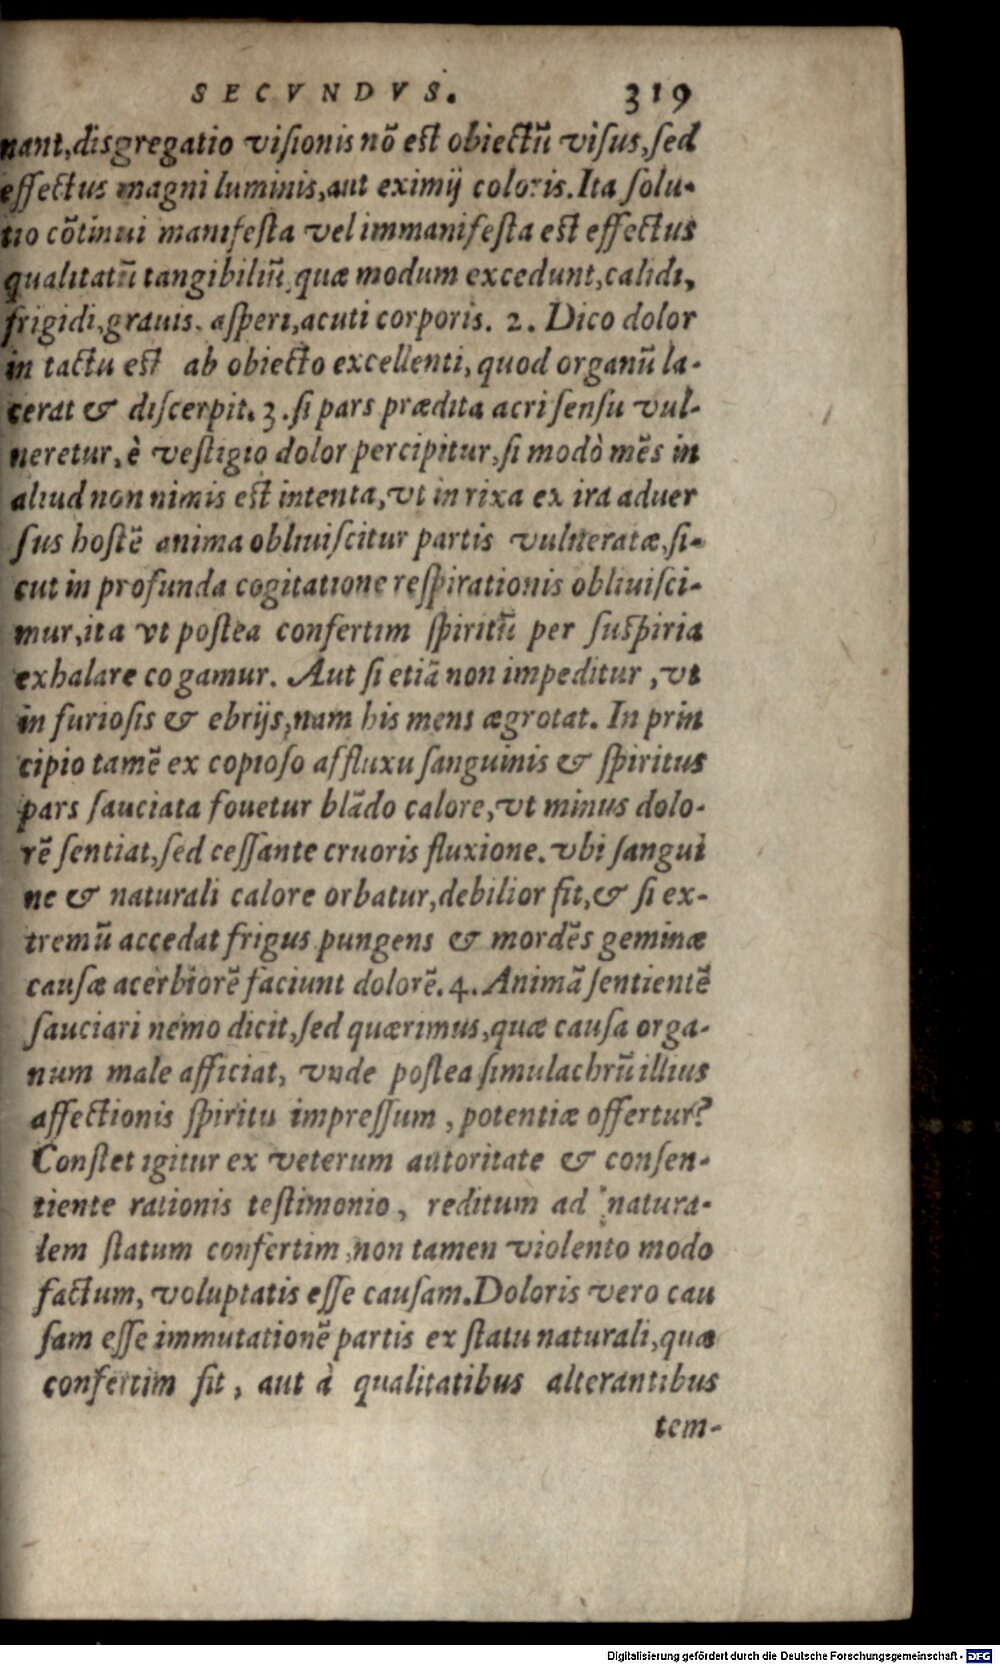 SECVNDVS. 319
nant, disgregatio visionis nõ est obiectũ visus, sed
effectus magni luminis, aut eximij coloris. Ita solu-
tio cõtinui manifesta vel immanifesta est effectus
qualitatũ tangibiliũ, quæ modum excedunt, calidi,
frigidi, grauis, asperi, acuti corporis. 2. Dico dolor
in tactu est ab obiecto excellenti, quod organũ la-
cerat & discerpit. 3. si pars prædita acri sensu vul-
neretur, è vestigio dolor percipitur, si modò mẽs in
aliud non nimis est intenta, vt in rixa ex ira aduer
sus hostẽ anima obliuiscitur partis vulneratæ, si-
cut in profunda cogitatione respirationis obliuisci-
mur, ita vt postea confertim spiritũ per suspiria
exhalare cogamur. Aut si etiã non impeditur, vt
in furiosis & ebrijs, nam his mens ægrotat. In prin
cipio tamẽ ex copioso affluxu sanguinis & spiritus
pars sauciata fouetur blãdo calore, vt minus dolo-
rẽ sentiat, sed cessante cruoris fluxione. vbi sangui
ne & naturali calore orbatur, debilior fit, & si ex-
tremũ accedat frigus pungens & mordẽs geminæ
causæ acerbiorẽ faciunt dolorẽ. 4. Animã sentientẽ
sauciari nemo dicit, sed quærimus, quæ causa orga-
num male afficiat, vnde postea simulachrũ illius
affectionis spiritu impressum, potentiæ offertur?
Constet igitur ex veterum autoritate & consen-
tiente rationis testimonio, reditum ad natura-
lem statum confertim, non tamen violento modo
factum, voluptatis esse causam. Doloris vero cau
sam esse immutationẽ partis ex statu naturali, quæ
confertim fit, aut à qualitatibus alterantibus
tem-
Digitalisierung gefördert durch die Deutsche Forschungsgemeinschaft - DFG